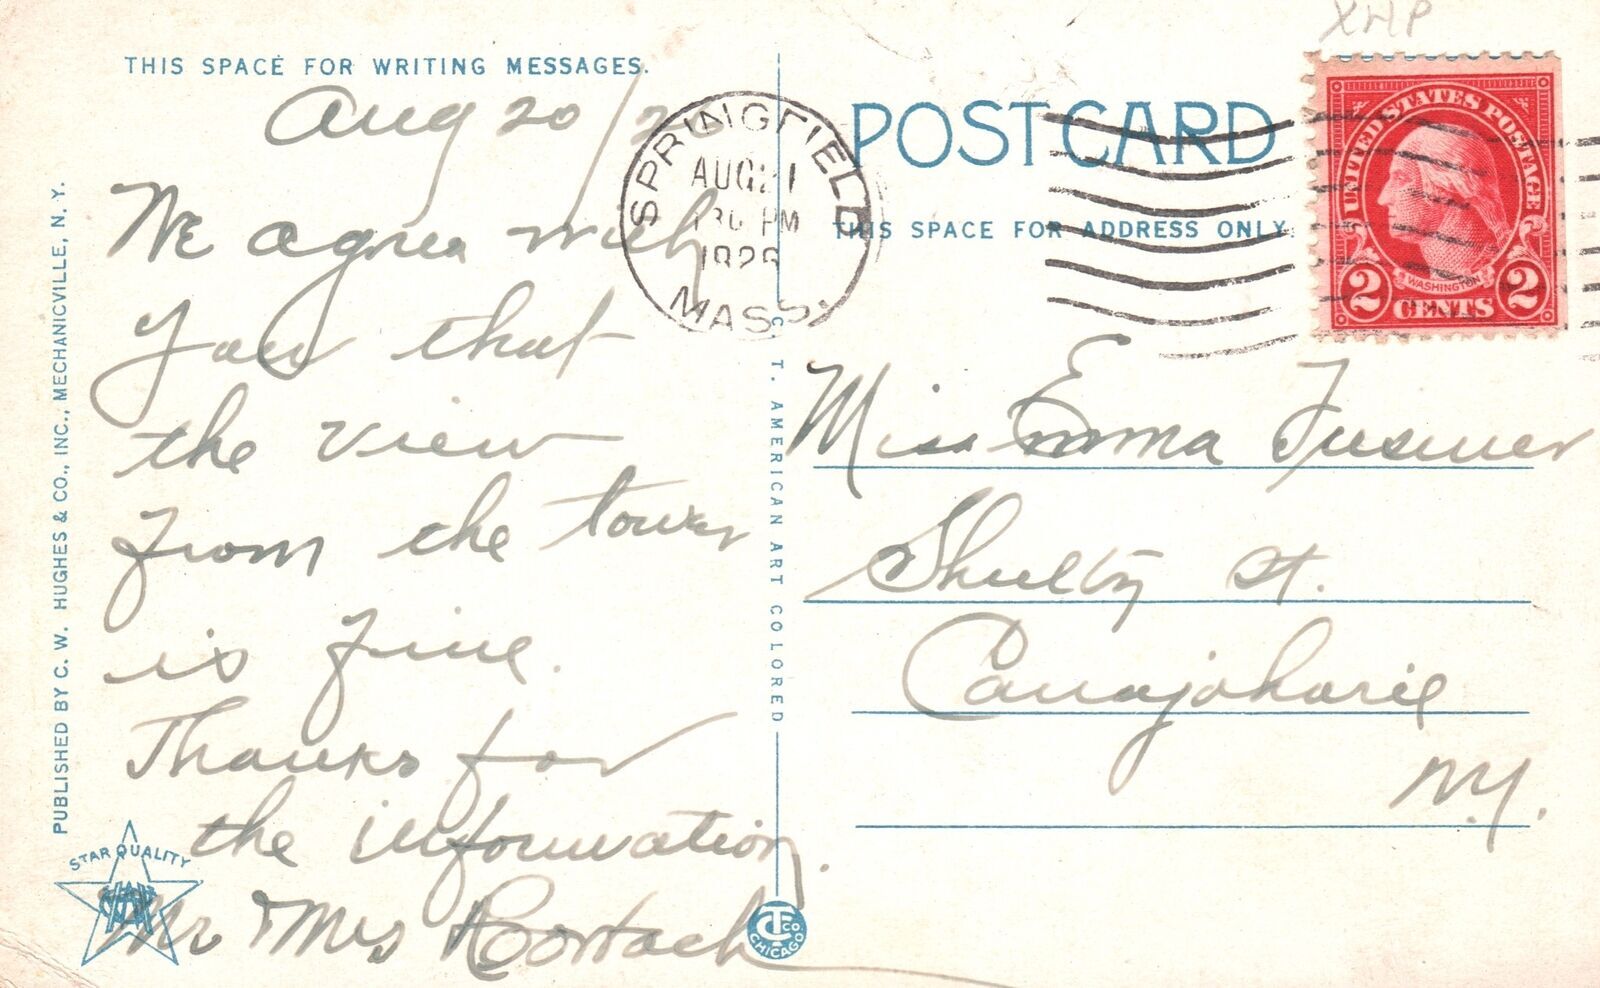 XHP
THIS SPACE FOR WRITING MESSAGES.
Aug 20/2
We agree with
you that
the view
from the tower
is fine.
Thanks for
the information.
Mr & Mrs
PUBLISHED BY C. W. HUGHES & CO., INC., MECHANICVILLE, N. Y.
STAR QUALITY
C. T. AMERICAN ART COLORED
C T CO. CHICAGO
SPRINGFIELD
AUG 21
1 30 PM
MASS.
POST CARD
THIS SPACE FOR ADDRESS ONLY.
UNITED STATES POSTAGE
WASHINGTON
2 CENTS 2
Miss Emma
St.
Canajoharie
N.Y.